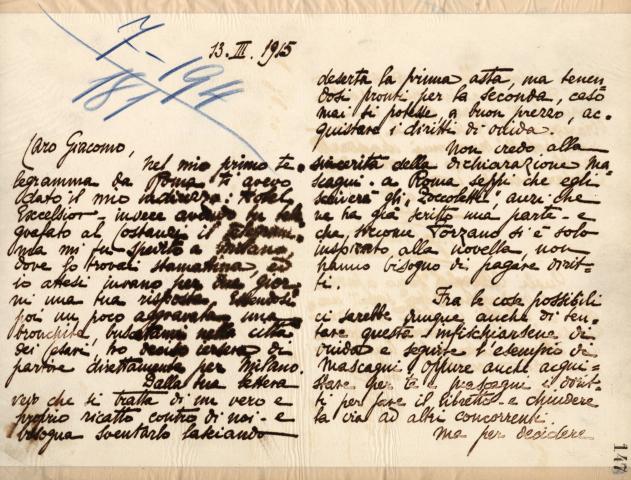 7-194
181
13. III. 1915
Caro Giacomo,
nel mio primo te-
legramma da Roma ti avevo
dato il mio indirizzo: Hotel
Excelsior - invece avendo tu tele
grafato al Costanzi il telegram-
ma mi fu spedito a Milano,
dove lo trovai stamattina, ed
io attesi invano per due gior-
ni una tua risposta. Essendosi
poi un poco aggravata una
bronchite, buscatami nella città
dei Cesari, ho deciso iersera di
partire direttamente per Milano.
Dalla tua lettera
vedo che si tratta di un vero e
proprio ricatto contro di noi - e
bisogna sventarlo lasciando
deserta la prima asta, ma tenen-
dosi pronti per la seconda, caso
mai si potesse, a buon prezzo, ac-
quistare i diritti di Ouida.
Non credo alla
sincerità della dichiarazione Ma-
scagni. a Roma seppi che egli
scriverà gli "Zoccoletti", anzi che
ne ha già scritto una parte - e
che, siccome Forzano si è solo
inspirato alla novella, non
hanno bisogno di pagare dirit-
ti.
Fra le cose possibili
ci sarebbe dunque anche di ten-
tare questa - infischiarsene di
Ouida e seguire l'esempio di
Mascagni, oppure anche acqui-
stare per te e Mascagni i dirit-
ti per fare il libretto e chiudere
la via ad altri concorrenti.
Ma per decidere
147